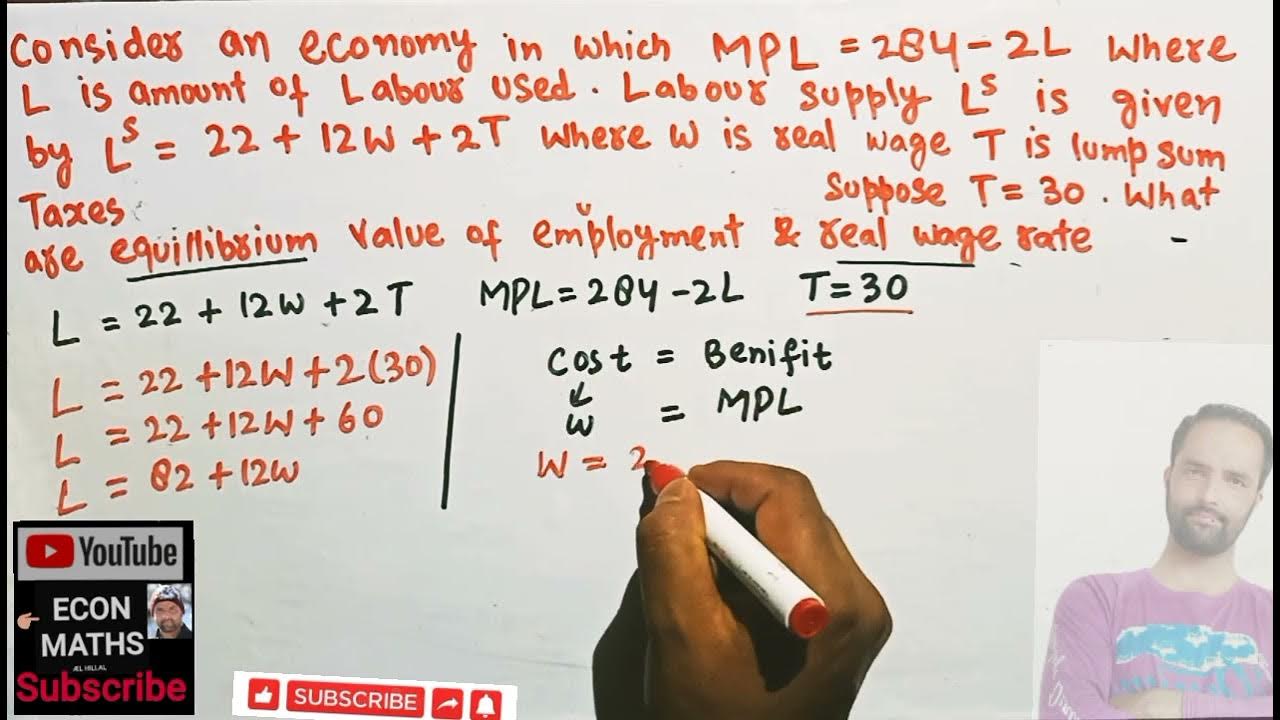 Consider an economy in which MPL = 284 - 2L where
L is amount of Labour used. Labour supply Lˢ is given
by Lˢ = 22 + 12W + 2T where W is real wage T is lump sum
Taxes suppose T = 30. What
are equillibrium value of employment & real wage rate -
L = 22 + 12W + 2T MPL = 284 - 2L T = 30
L = 22 + 12W + 2(30)
L = 22 + 12W + 60
L = 82 + 12W
Cost = Benifit
↙
W = MPL
W = 2
YouTube
ECON
MATHS
ÆL HILLAL
Subscribe
SUBSCRIBE